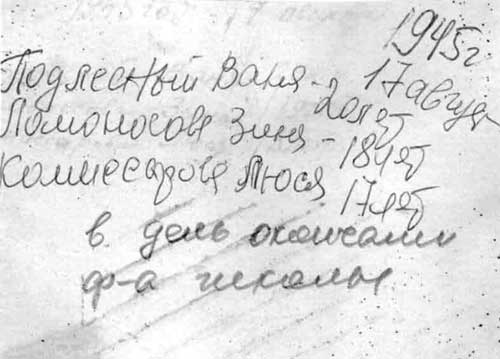 1945 г
17 август
Подлесный Ваня - 20 лет
Ломоносова Зина - 18 лет
Комиссарова Люся 17 лет
в день окончания
ф-а школы